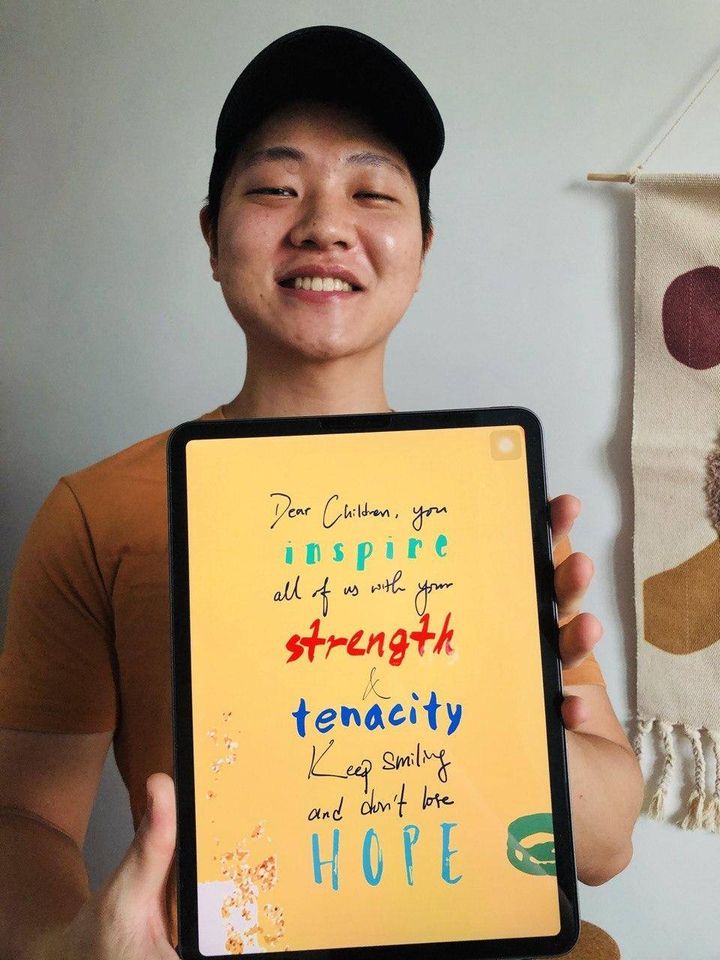 Dear Children, you
inspire
all of us with your
strength
&
tenacity
Keep smiling
and don't lose
HOPE